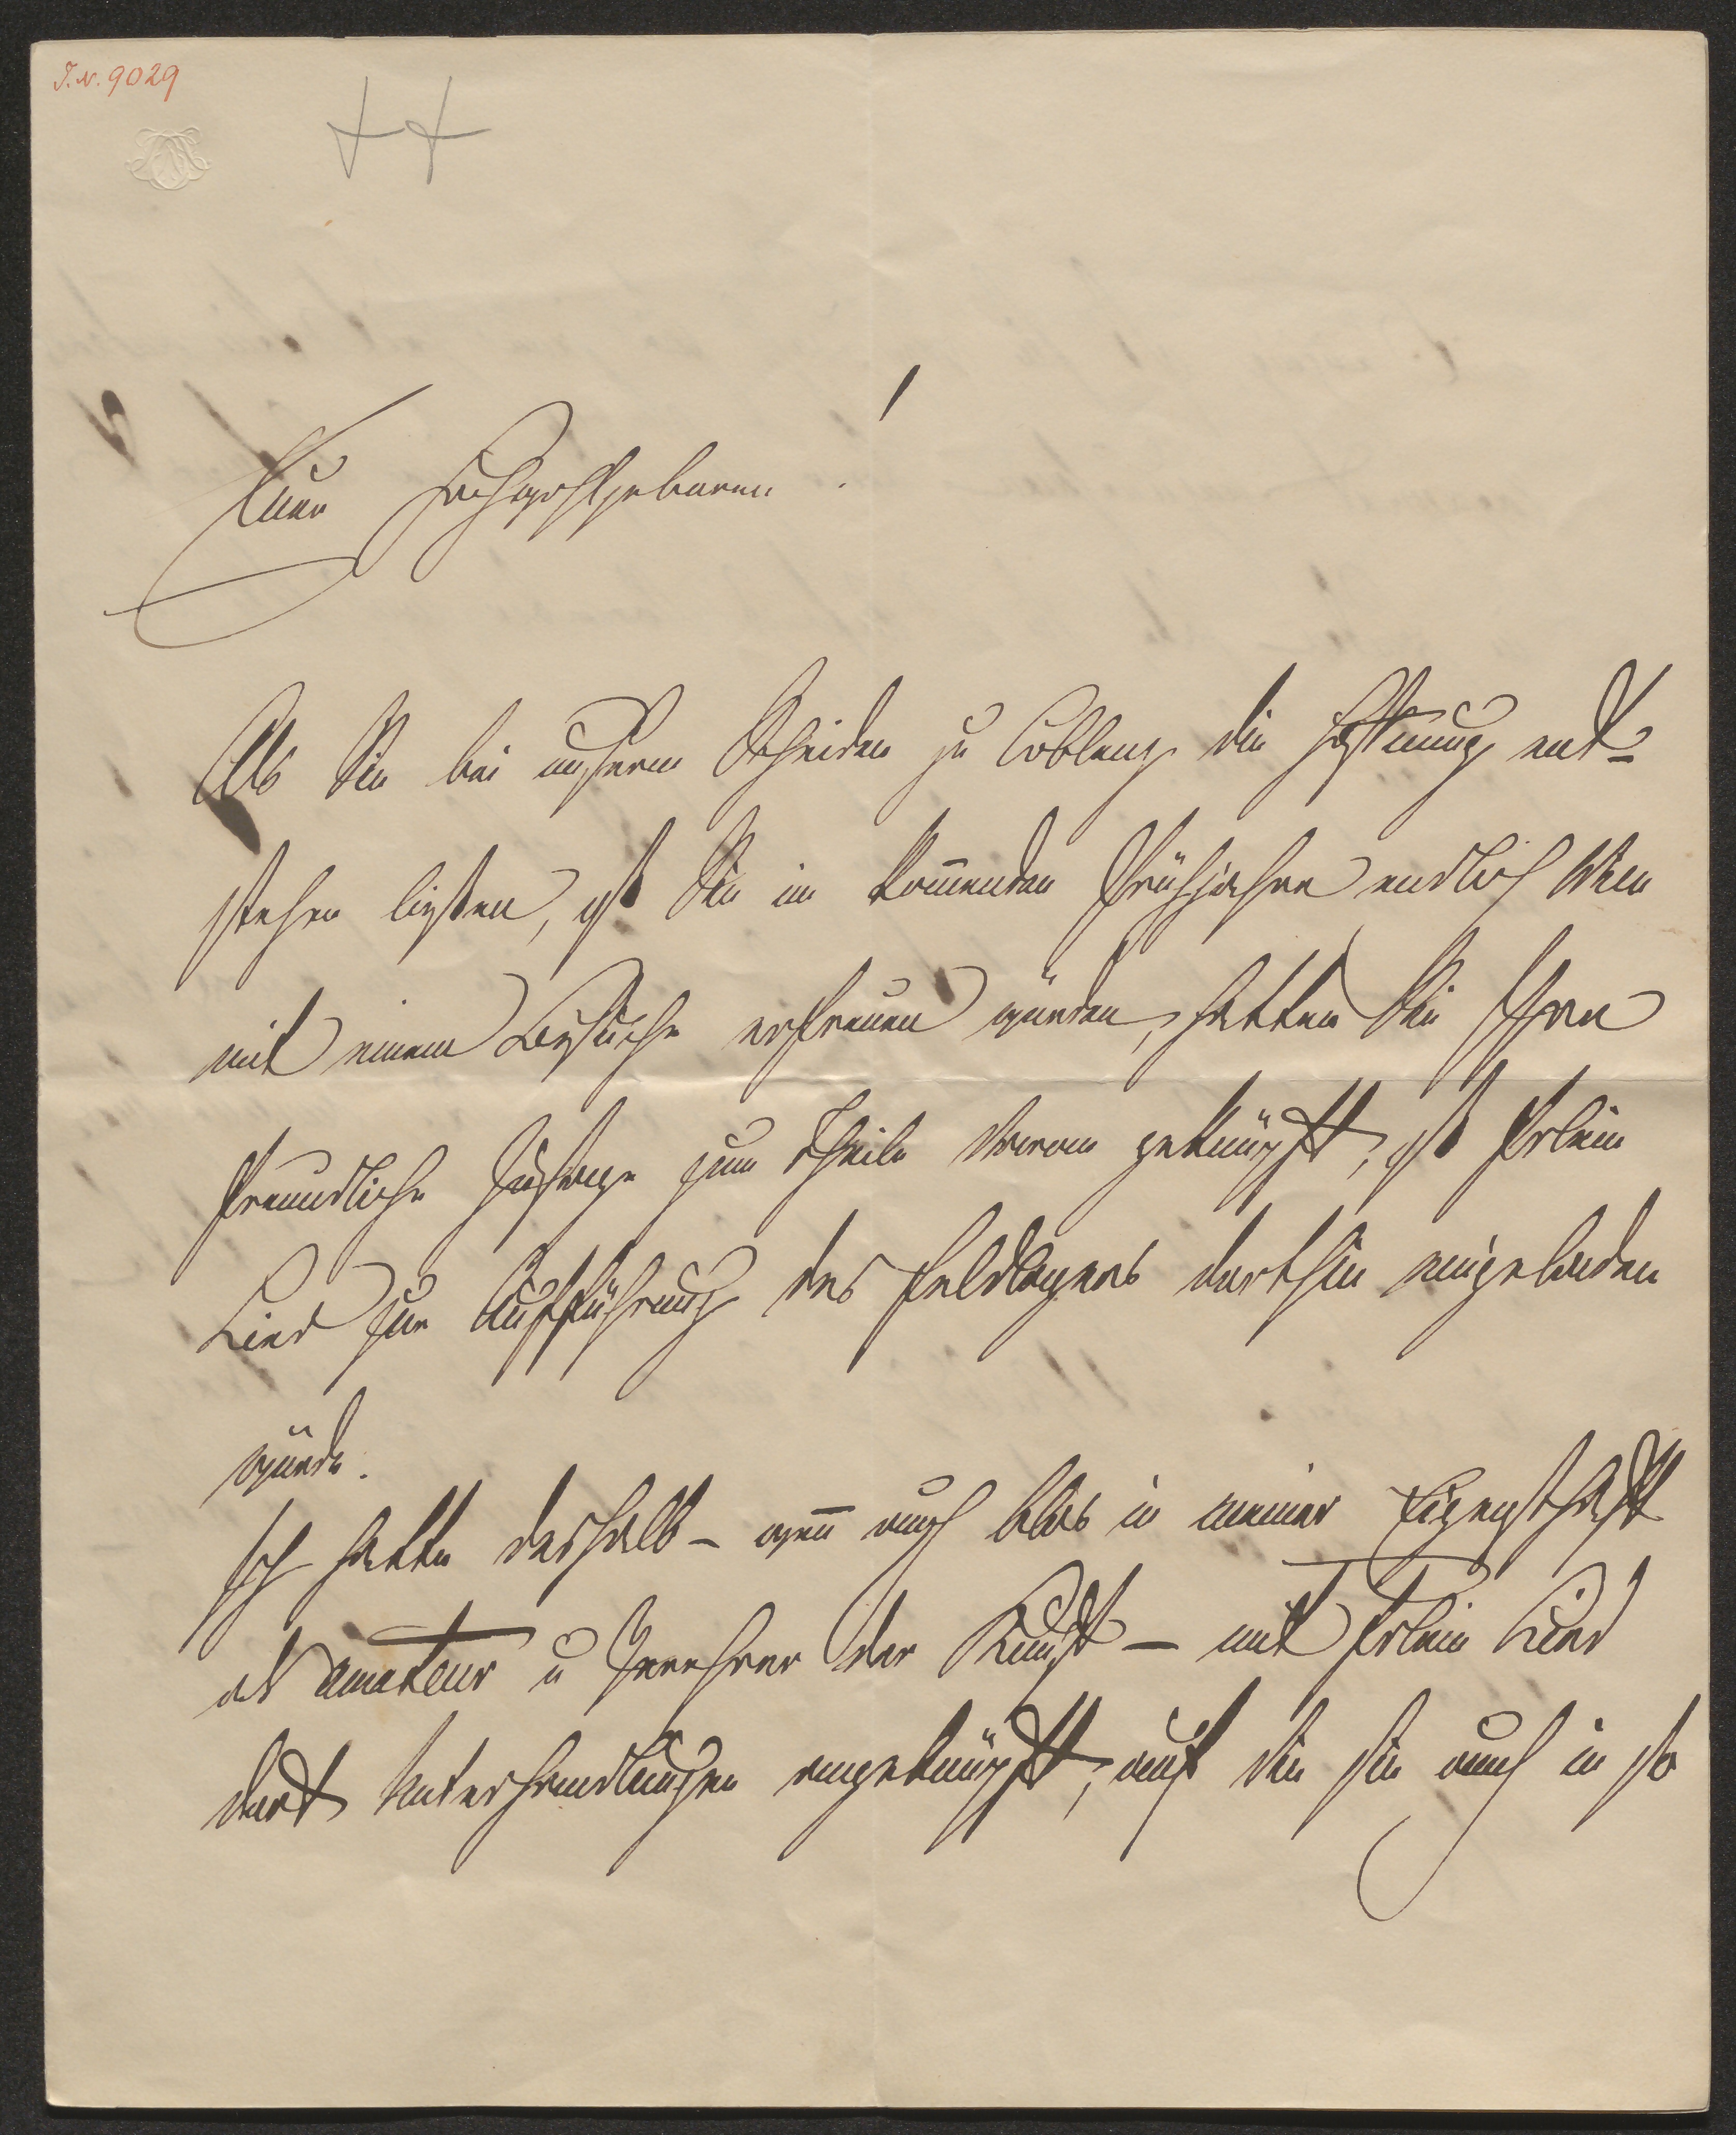 I. N. 9029
Euer Hochwohlgeboren!
Als Sie bei unserm Scheiden zu Coblenz die Hoffnung ent-
stehen ließen, daß Sie im kommenden Frühjahre endlich Wien
mit einem Besuche erfreuen würden, hatten Sie Ihre
freundliche Zusage zum Theile daran geknüpft, daß Frlein
Lind zur Aufführung des Feldlagers dorthin eingeladen
würde.
Ich hatte deshalb – weñ auch blos in meiner Eigenschaft
als amateur u Verehrer der Kunst – mit Frlein Lind
dort Unterhandlungen angeknüpft, auf die sie auch in so